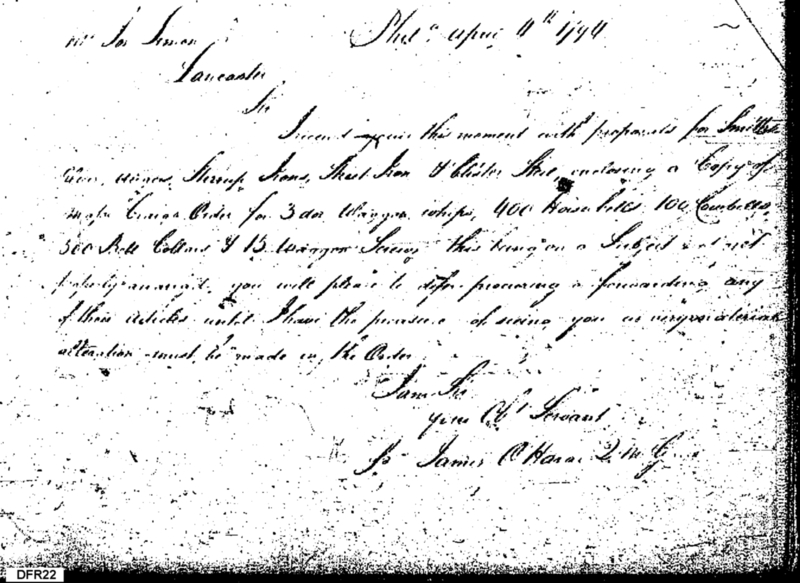 Phila April 4th 1794
Mr Jos Simon
Lancaster
Sir
I received yours this moment with proposals for Smith's
Stirrup Irons, Sheet Iron & Blister Steel, enclosing a Copy of
Major Craigs Order for 3 doz Waggon whips, 400 Horse bells 100 Cowbells,
300 Bell Collars & 13 Waggon Screws this being on a Subject not
properly arranged, you will please to defer procuring or forwarding any
of these articles until I have the pleasure of seeing you as very material
alteration must be made in the Order
I am Sir
your Obt Servant
James O'Hara Q.M.G
DFR22